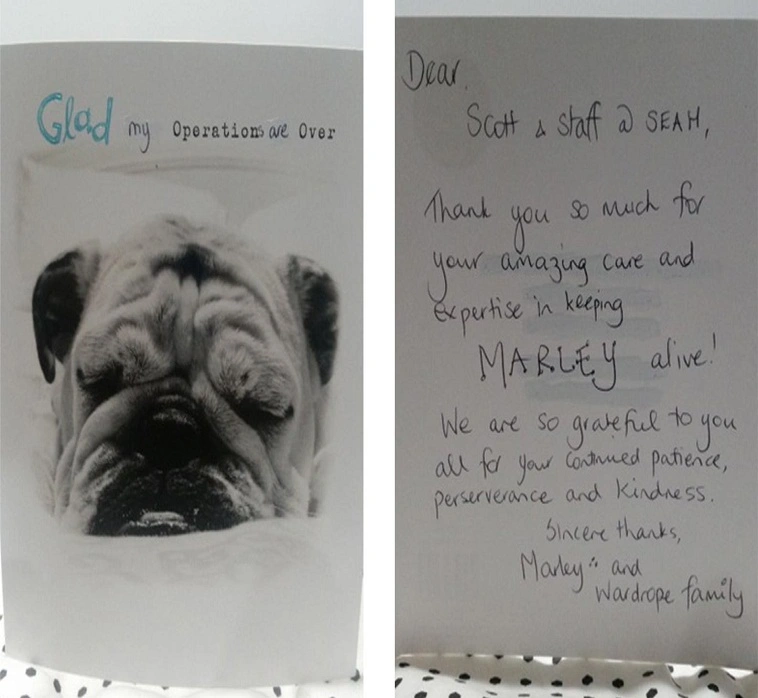 Glad my Operations are Over
Dear,
Scott & staff @ SEAH,
Thank you so much for
your amazing care and
expertise in keeping
MARLEY alive!
We are so grateful to you
all for your continued patience,
perserverance and kindness.
Sincere thanks,
Marley and
Wardrope family